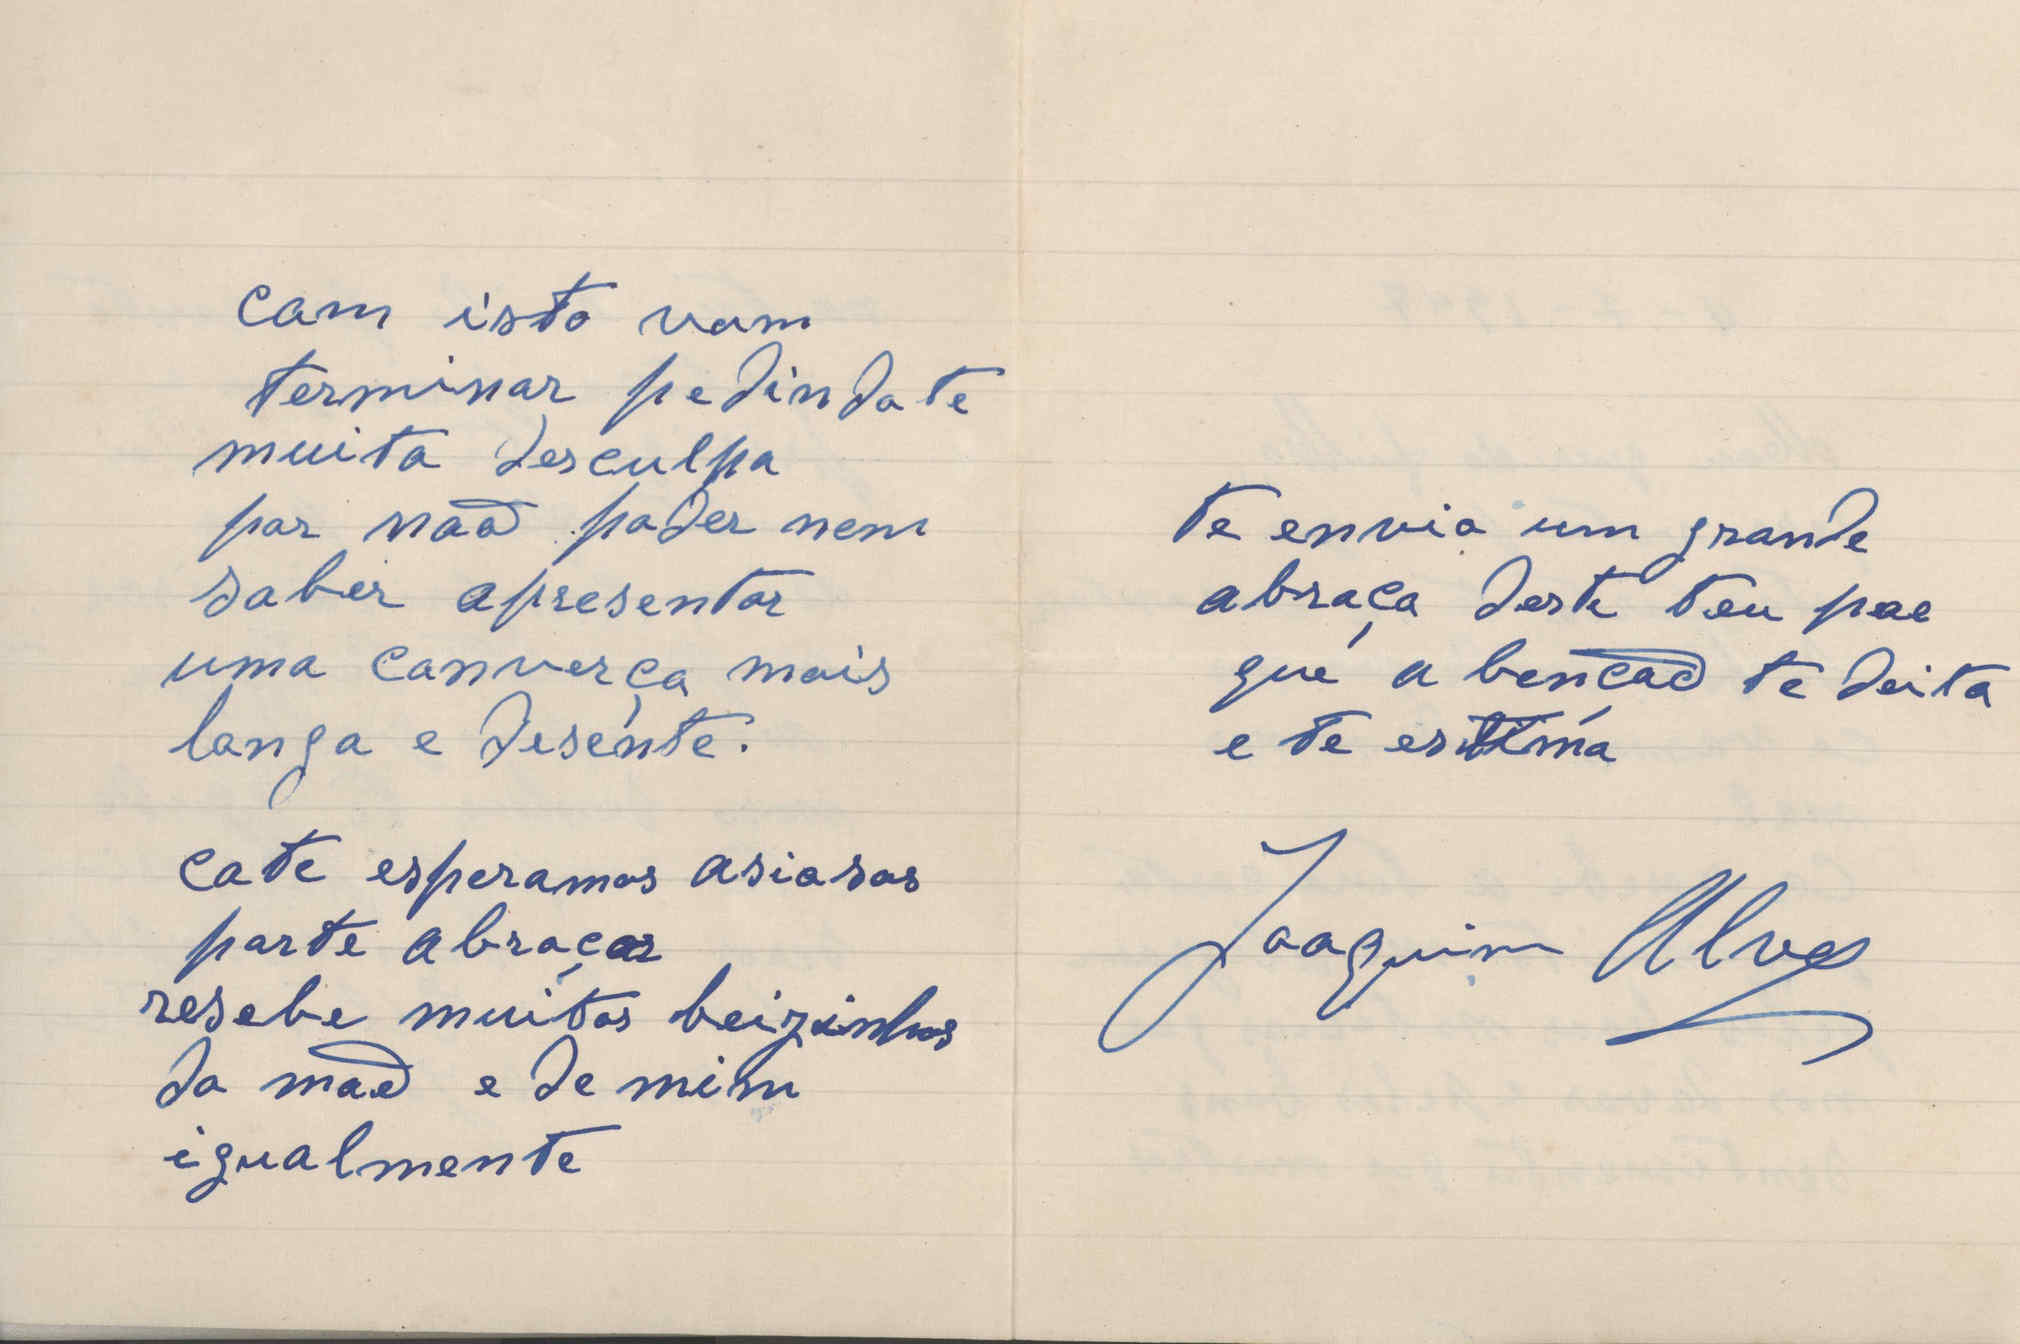 com isto vom
terminar pedindote
muita desculpa
por não poder nem
saber apresentar
uma converça mais
longa e desente.
cate esperamos asiosos
parte abraçar
resebe muitos beizinhos
da mãe e de mim
igualmente
te envio um grande
abraço deste teu pae
que a bençaõ te deita
e te estima
Joaquim Alves